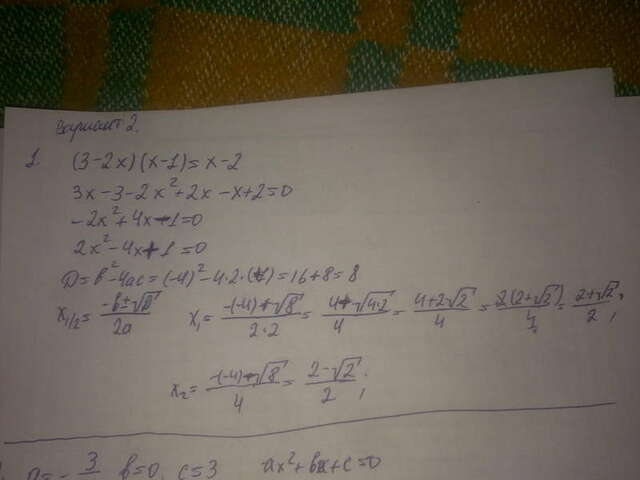 Вариант 2.
1. (3-2x)(x-1)=x-2
3x-3-2x²+2x-x+2=0
-2x²+4x-1=0
2x²-4x+1=0
D=b²-4ac=(-4)²-4·2·(1)=16+8=8
x₁/₂=(-b±√D)/2a x₁=(-(-4)+√8)/(2·2)=(4+√(4·2))/4=(4+2√2)/4=(2(2+√2))/4=(2+√2)/2;
x₂=(-(-4)-√8)/4=(2-√2)/2;
a=-3 b=0, c=3 ax²+bx+c=0